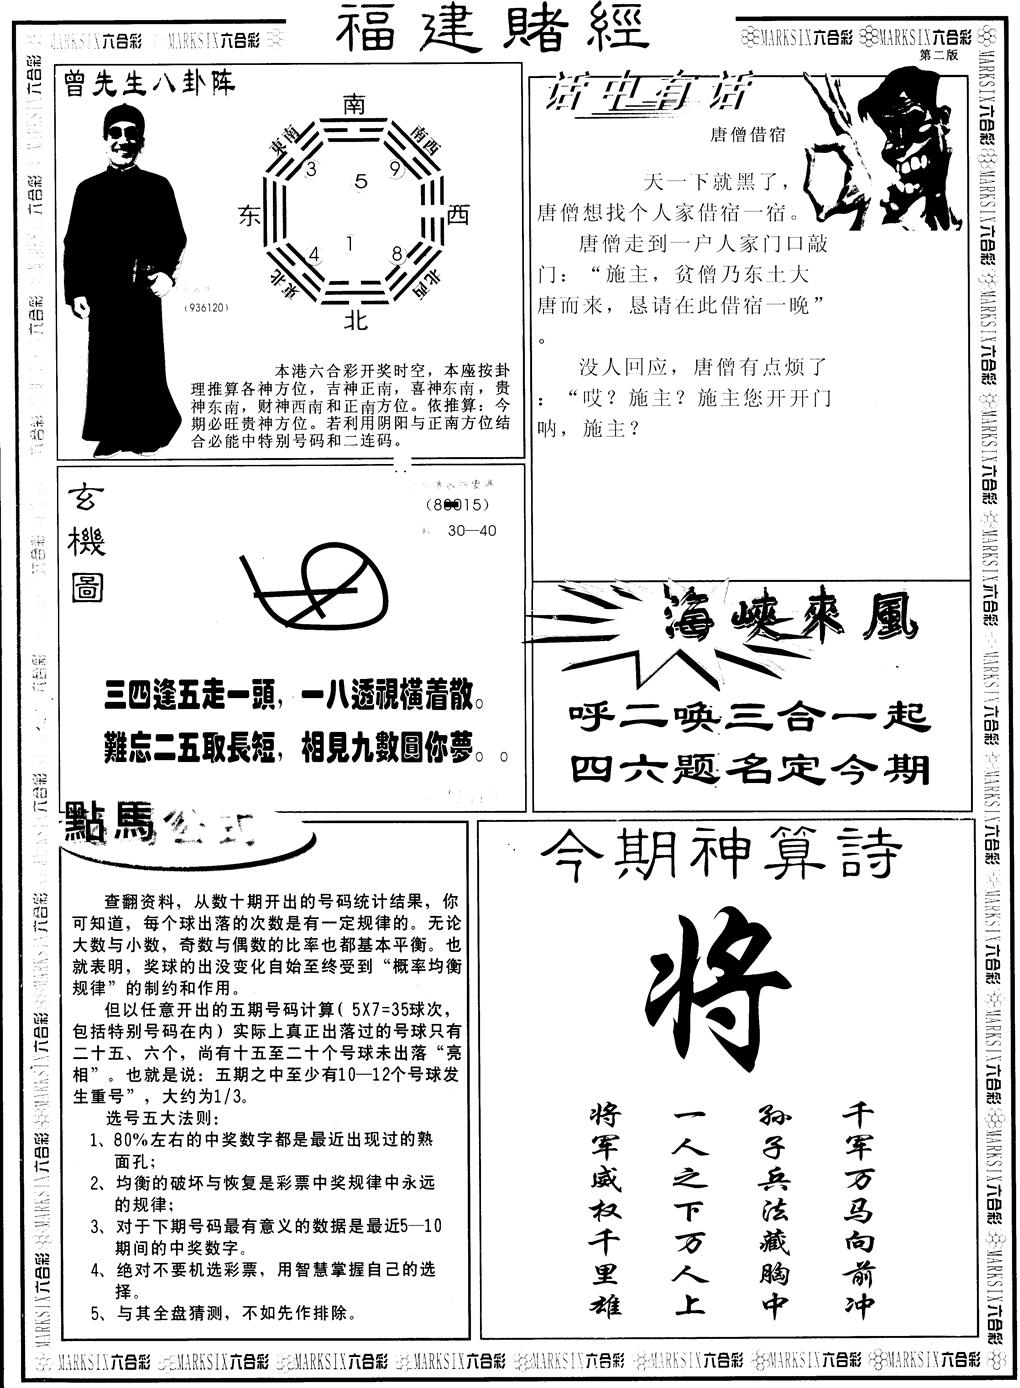 福建賭經
MARKSIX六合彩 MARKSIX六合彩
MARKSIX六合彩 MARKSIX六合彩
第二版
曾先生八卦阵
南
東南
南西
3
9
5
东
西
4
1
8
東北
北西
北
(936120)
本港六合彩开奖时空，本座按卦
理推算各神方位，吉神正南，喜神东南，贵
神东南，财神西南和正南方位。依推算：今
期必旺贵神方位。若利用阴阳与正南方位结
合必能中特别号码和二连码。
话中有话
唐僧借宿
天一下就黑了，
唐僧想找个人家借宿一宿。
唐僧走到一户人家门口敲
门：“施主，贫僧乃东土大
唐而来，恳请在此借宿一晚”
。
没人回应，唐僧有点烦了
：“哎？施主？施主您开开门
呐，施主？
玄機圖
30—40
三四逢五走一頭，一八透視橫着散。
難忘二五取長短，相見九數圓你夢。。
海峽來風
呼二唤三合一起
四六题名定今期
點馬公式
查翻资料，从数十期开出的号码统计结果，你
可知道，每个球出落的次数是有一定规律的。无论
大数与小数，奇数与偶数的比率也都基本平衡。也
就表明，奖球的出没变化自始至终受到“概率均衡
规律”的制约和作用。
但以任意开出的五期号码计算( 5X7=35球次，
包括特别号码在内）实际上真正出落过的号球只有
二十五、六个，尚有十五至二十个号球未出落“亮
相”。也就是说：五期之中至少有10—12个号球发
生重号”，大约为1/3。
选号五大法则：
1、80%左右的中奖数字都是最近出现过的熟
面孔；
2、均衡的破坏与恢复是彩票中奖规律中永远
的规律；
3、对于下期号码最有意义的数据是最近5—10
期间的中奖数字。
4、绝对不要机选彩票，用智慧掌握自己的选
择。
5、与其全盘猜测，不如先作排除。
今期神算詩
将
千军万马向前冲
孙子兵法藏胸中
一人之下万人上
将军威权千里雄
MARKSIX六合彩 MARKSIX六合彩 MARKSIX六合彩 MARKSIX六合彩 MARKSIX六合彩 MARKSIX六合彩 MARKSIX六合彩 MARKSIX六合彩